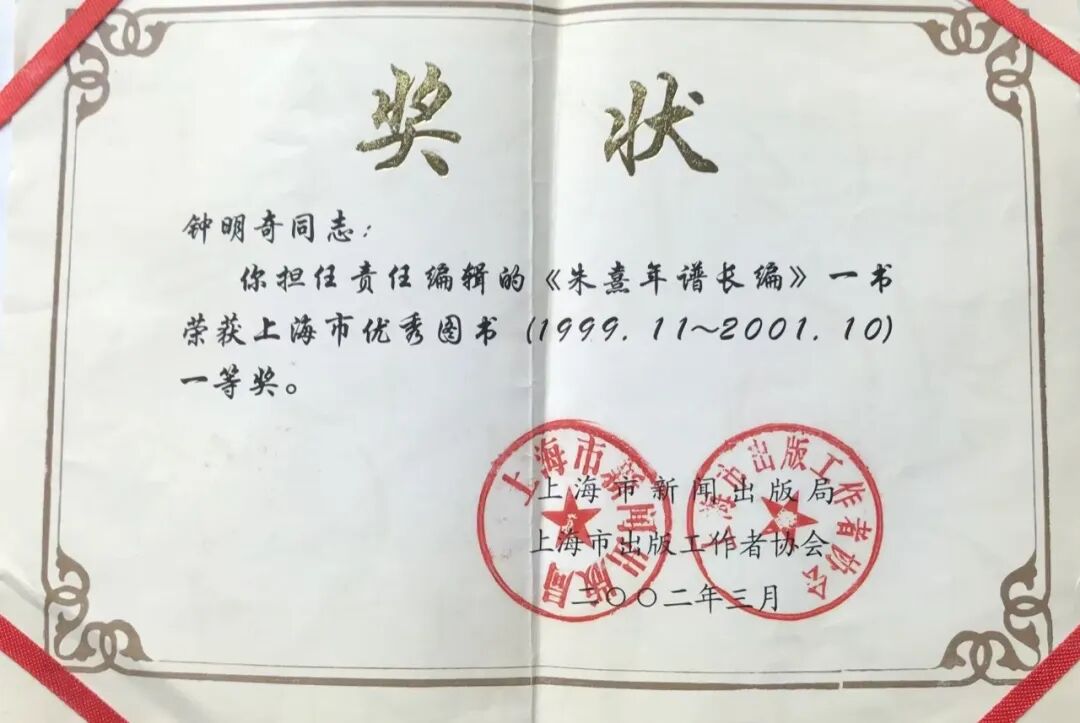 奖状
钟明奇同志：
你担任责任编辑的《朱熹年谱长编》一书
荣获上海市优秀图书（1999.11～2001.10）
一等奖。
上海市新闻出版局
上海市出版工作者协会
二〇〇二年三月
上海市新闻出版局
上海市出版工作者协会